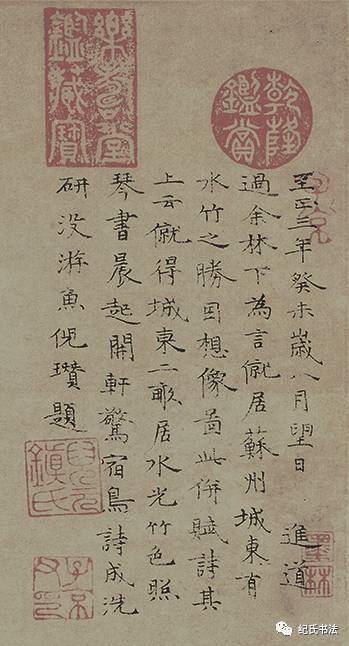 乾隆鑑賞
樂壽堂
鑑藏寶
子京
至正三年癸未歲八月望日 進道
過余林下為言僦居蘇州城東有
水竹之勝因想像圖此併賦詩其
上云僦得城東二畝居水光竹色照
琴書晨起開軒驚宿鳥詩成洗
研没游魚倪瓚題
墨林
子京父印
纪氏书法